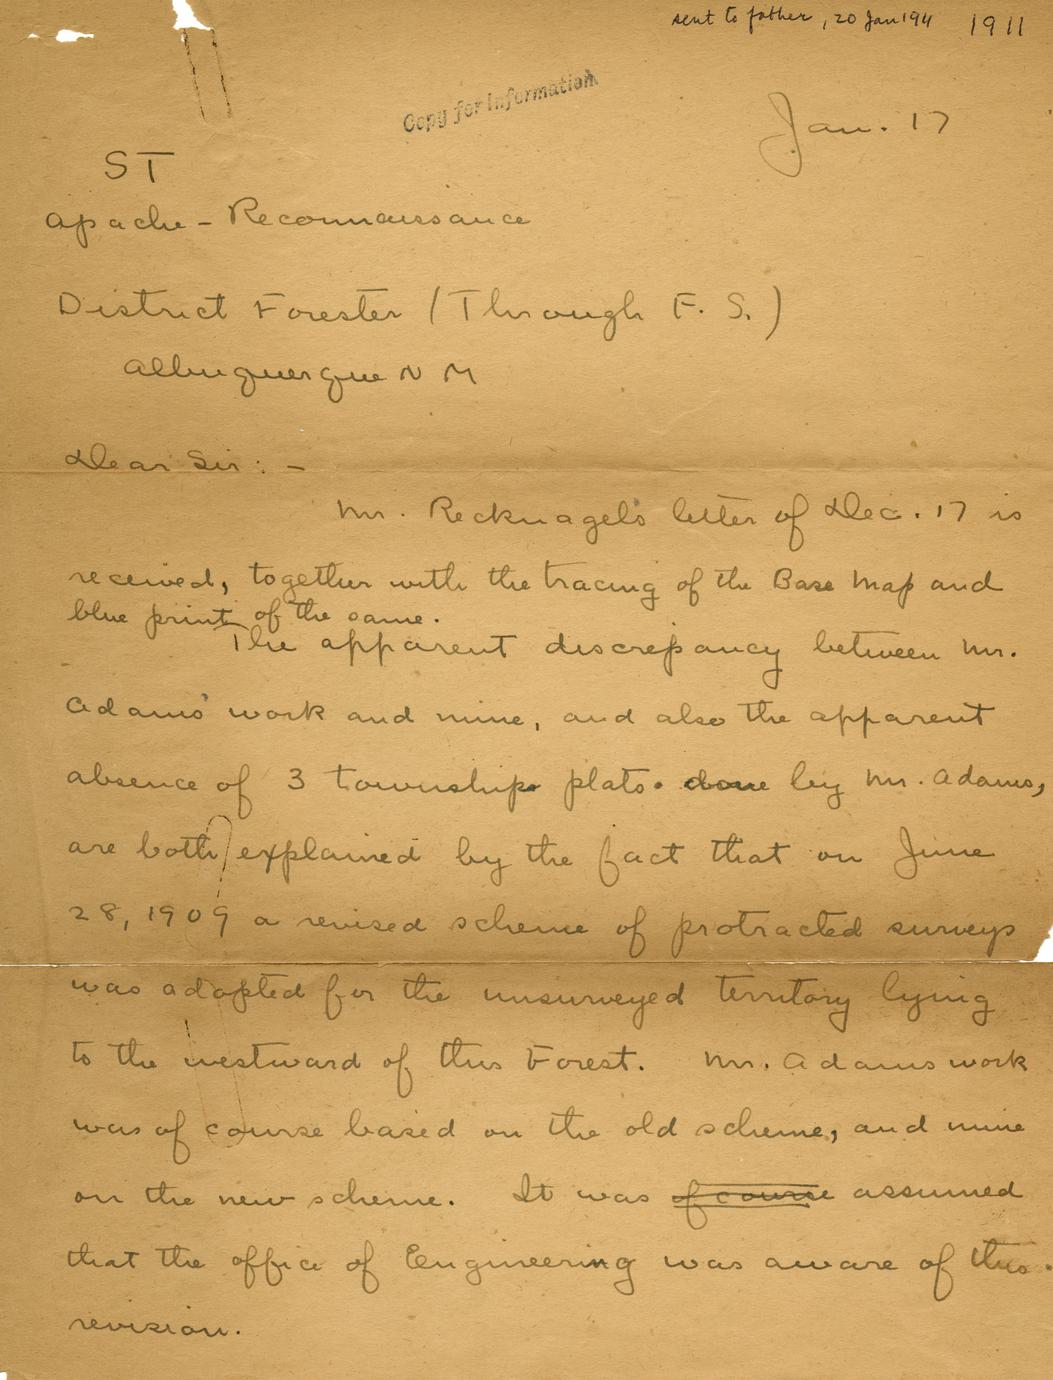 sent to father, 20 Jan 1911 1911
Copy for Information
Jan. 17
ST
Apache - Reconnaissance
District Forester (Through F. S.)
Albuquerque N M
Dear Sir: -
Mr. Recknagel's letter of Dec. 17 is
received, together with the tracing of the Base Map and
blue print of the same.
The apparent discrepancy between Mr.
Adams' work and mine, and also the apparent
absence of 3 township plats. done by Mr. Adams,
are both explained by the fact that on June
28, 1909 a revised scheme of protracted surveys
was adopted for the unsurveyed territory lying
to the westward of this Forest. Mr. Adams work
was of course based on the old scheme, and mine
on the new scheme. It was of course assumed
that the office of Engineering was aware of this
revision.